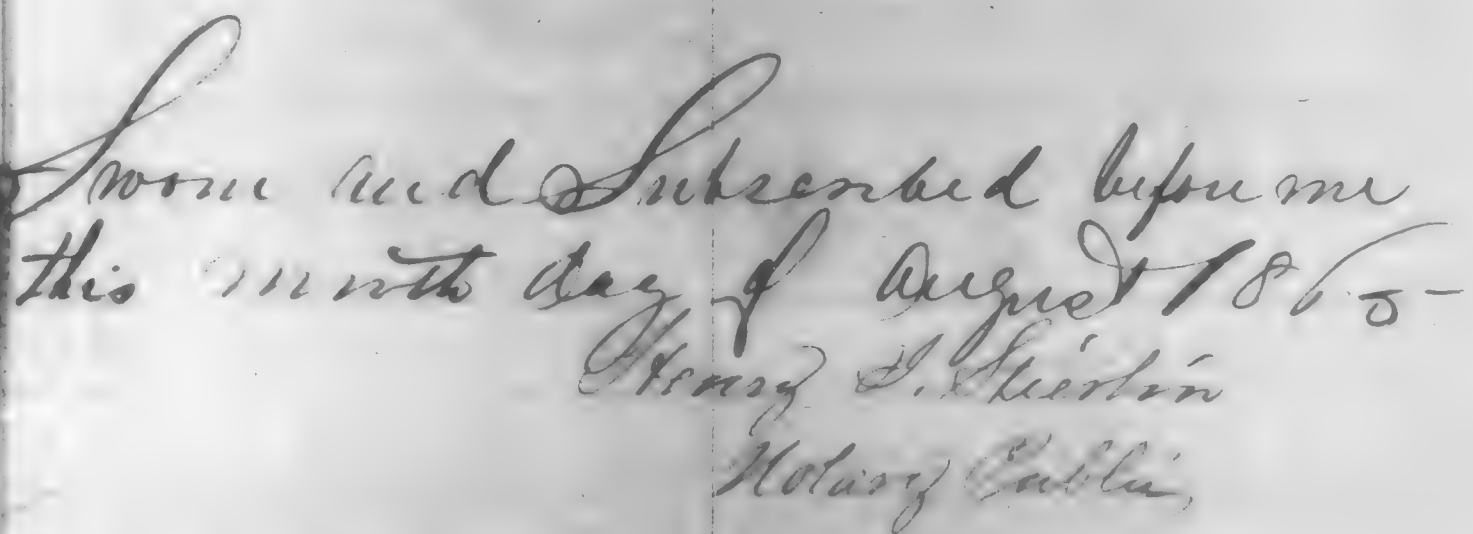 Sworn and Subscribed before me
this ninth day of August 1865
Henry
Notary Public